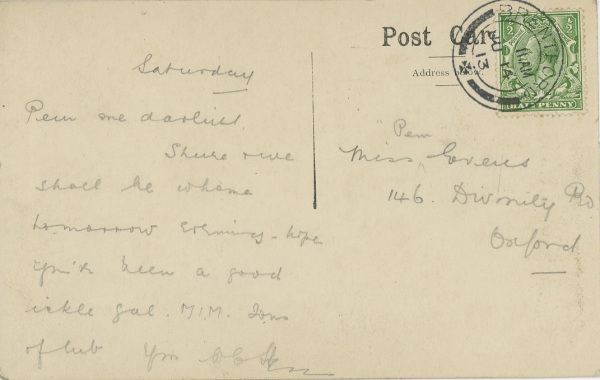 Post Card
Address below.
BRENTFORD
11 AM
JU 14
13
HALF PENNY
Saturday
Pem me darlint
Shure we
shall be whome
tomorrow evening - hope
you've been a good
ickle gal. M.I.M. Tons
of lub Yrs
Pem
Miss Evens
146. Divinity Rd
Oxford